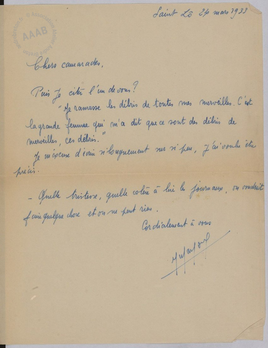 AAAB
Saint Lo 24 mars 1933
Chers camarades,
Puis je citer l'un de vous ?
"Je ramasse les débris de toutes mes merveilles. C'est
la grande femme qui m'a dit que ce sont des débris de
merveilles, ces débris."
Je m'excuse d'écrire si longuement
précis.
- Quelle tristesse, quelle colère à lire les journaux, on voudrait
faire quelque chose et on ne peut rien.
Cordialement à vous